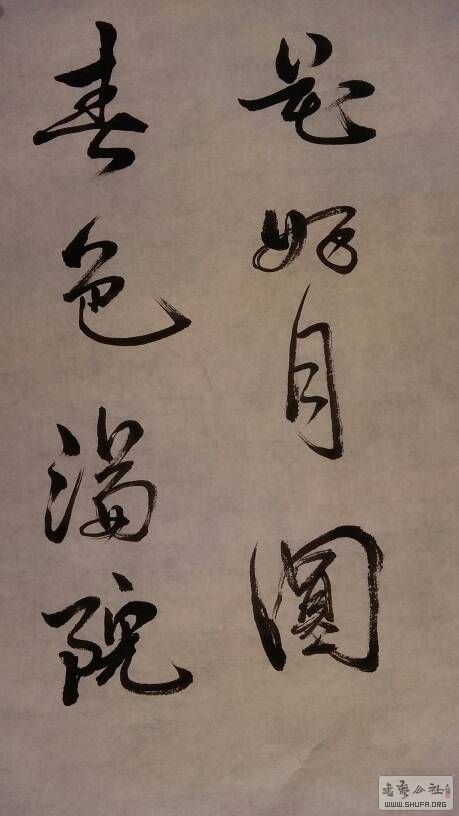 花好月圓
春色滿院
書艺公社
WWW.SHUFA.ORG